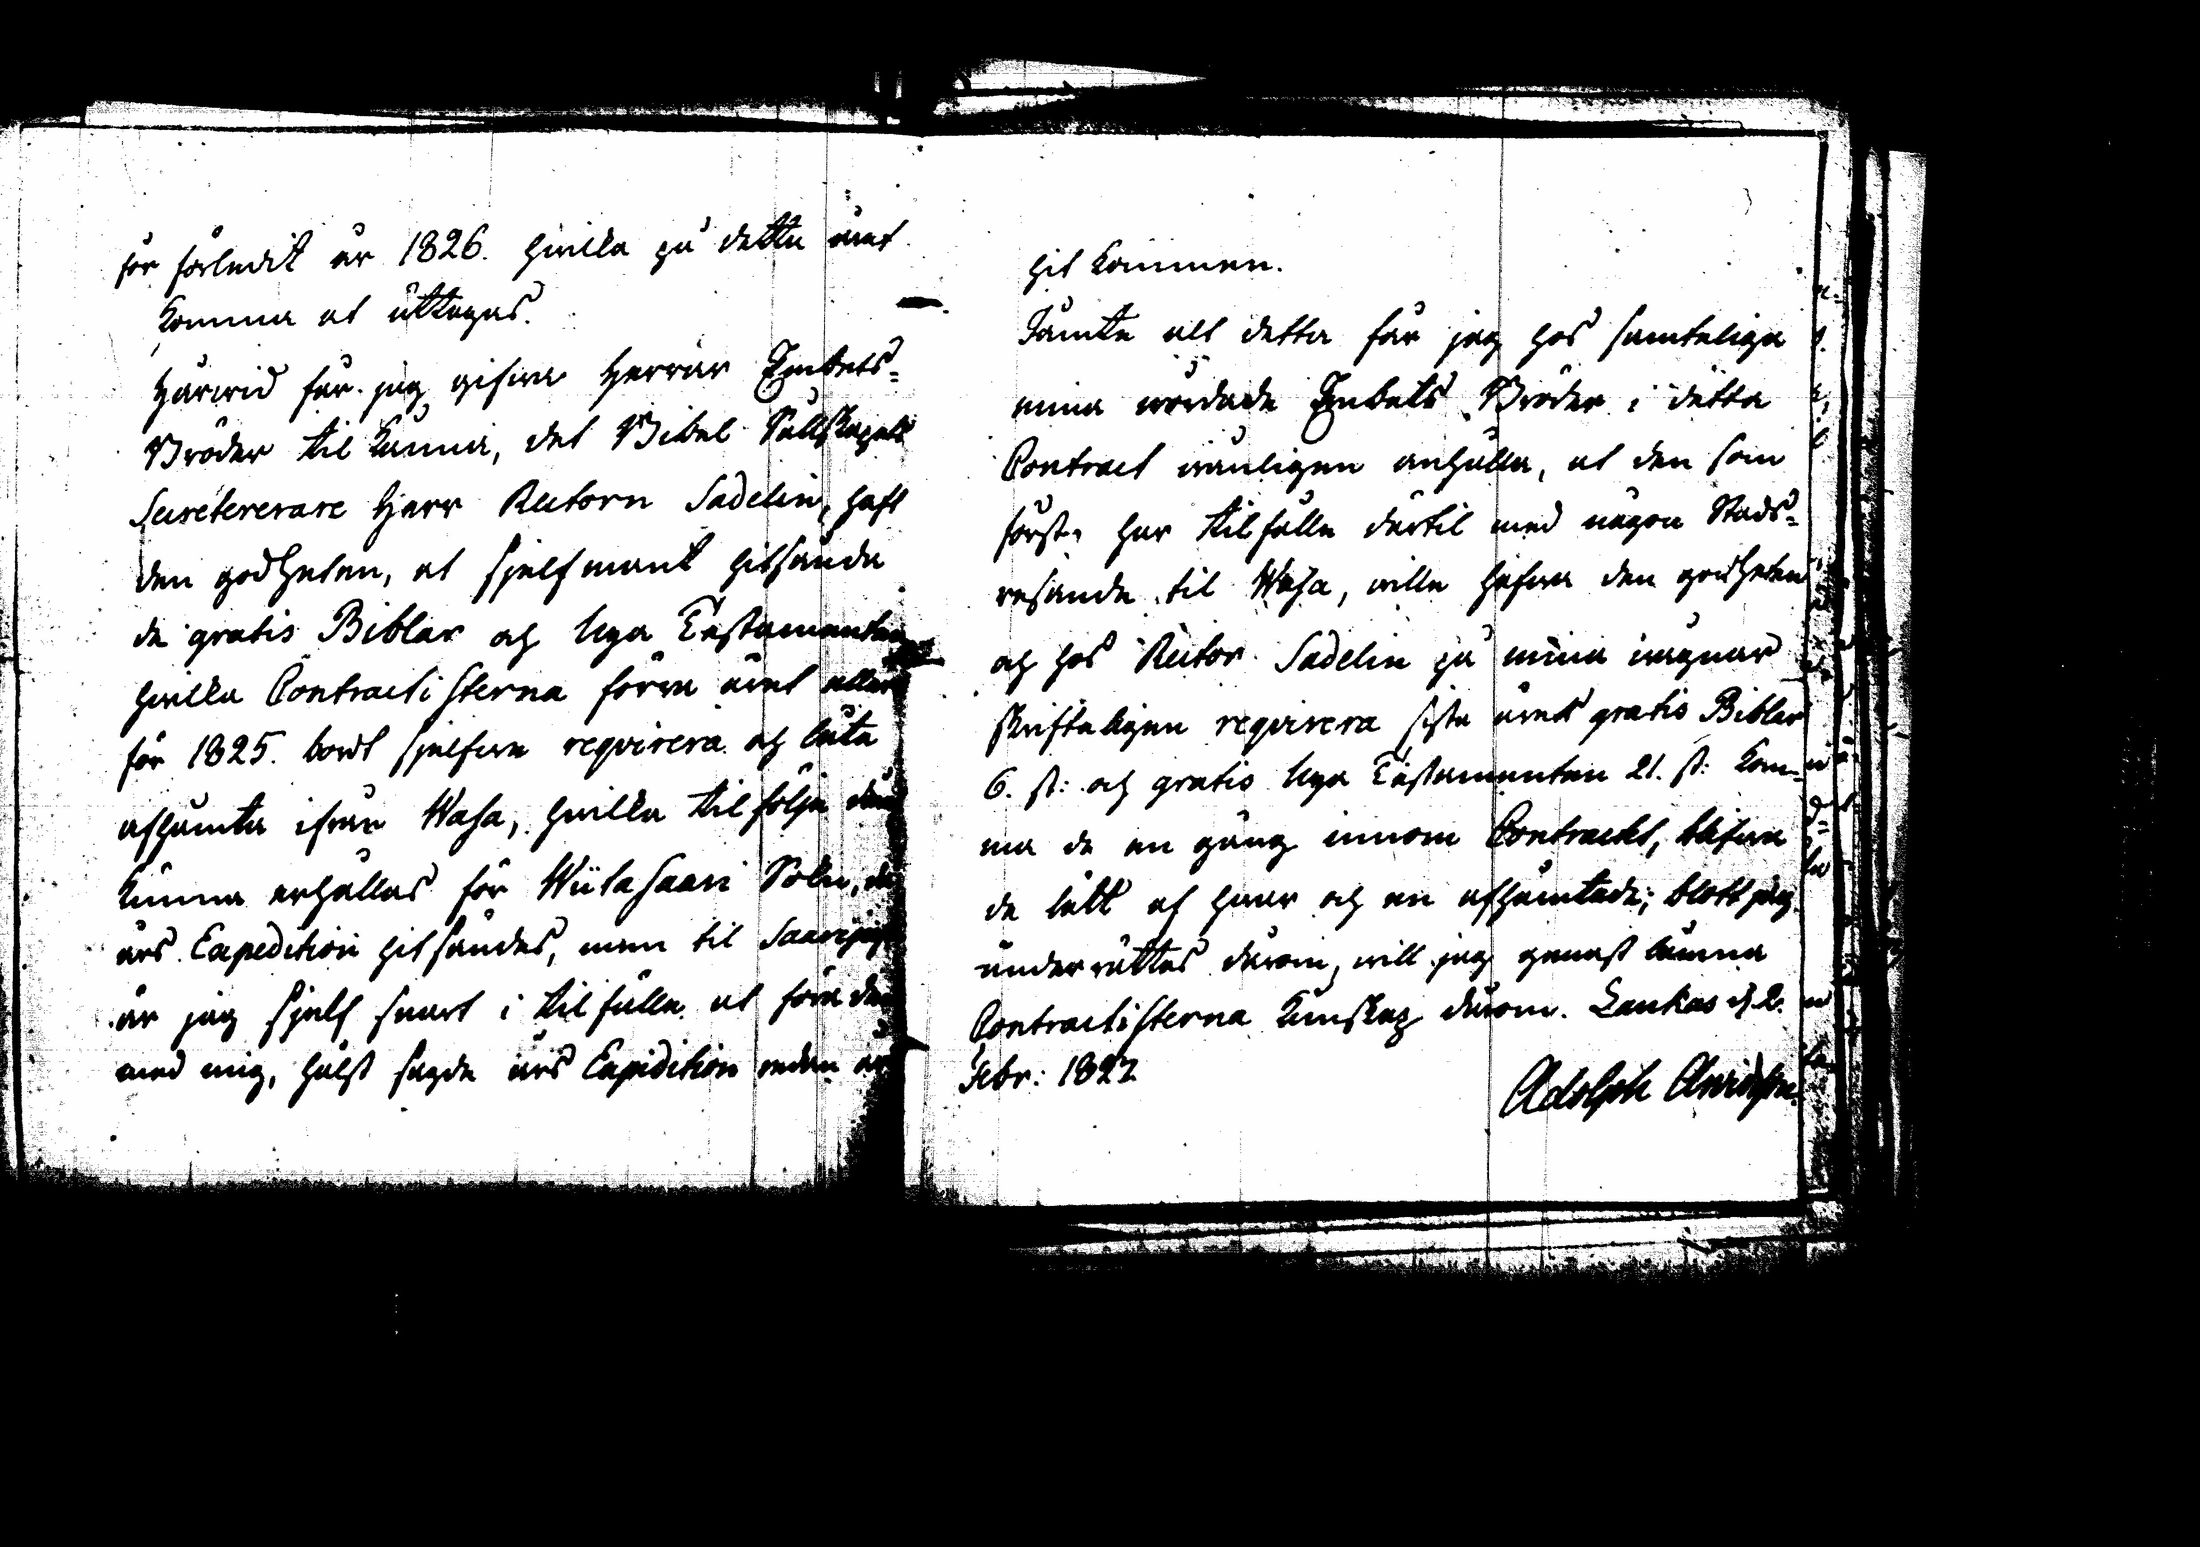 för förledit år 1826. hvilka på detta året
komma at uttagas.
Härvid får jag gifva Herrar Embets=
Bröder til känna, det Bibel Sällskapets
Secreterare Herr Rectorn Sadelin, haft
den godheten, at sjelfmant hitsända
de gratis Biblar och Nya Testamenten
hvilka Contractisterna förra året
för 1825. bordt sjelfva reqvirera och låta
afhämta ifrån Wasa, hvilka til följe
kunna erhållas för Wiitasaari Sokn,
års Expedition hitsändes, men til
är jag sjelf snart i tilfälle at föra
med mig, hälst sagde års Expedition redan är
hit kommen.
Jämte alt detta får jag hos samtelige
mina wördade Embets Bröder i detta
Contract wänligen anhålla, at den som
först har tilfälle därtil med någon Stads=
resande til Wasa, wille hafva den godheten
och hos Rector Sadelin på mina wägnar
skrifteligen reqvirera sista årets gratis Biblar
6. st: och gratis Nya Testamenten 21. st: Kom=
ma de en gång innom Contractet, blifva
de lätt af hvar och en afhämtade; blott jag
underrättas därom, will jag genast lämna
Contractisterna kunskap därom. Laukas d. 2.
Febr: 1827
Adolph Arwidsson.